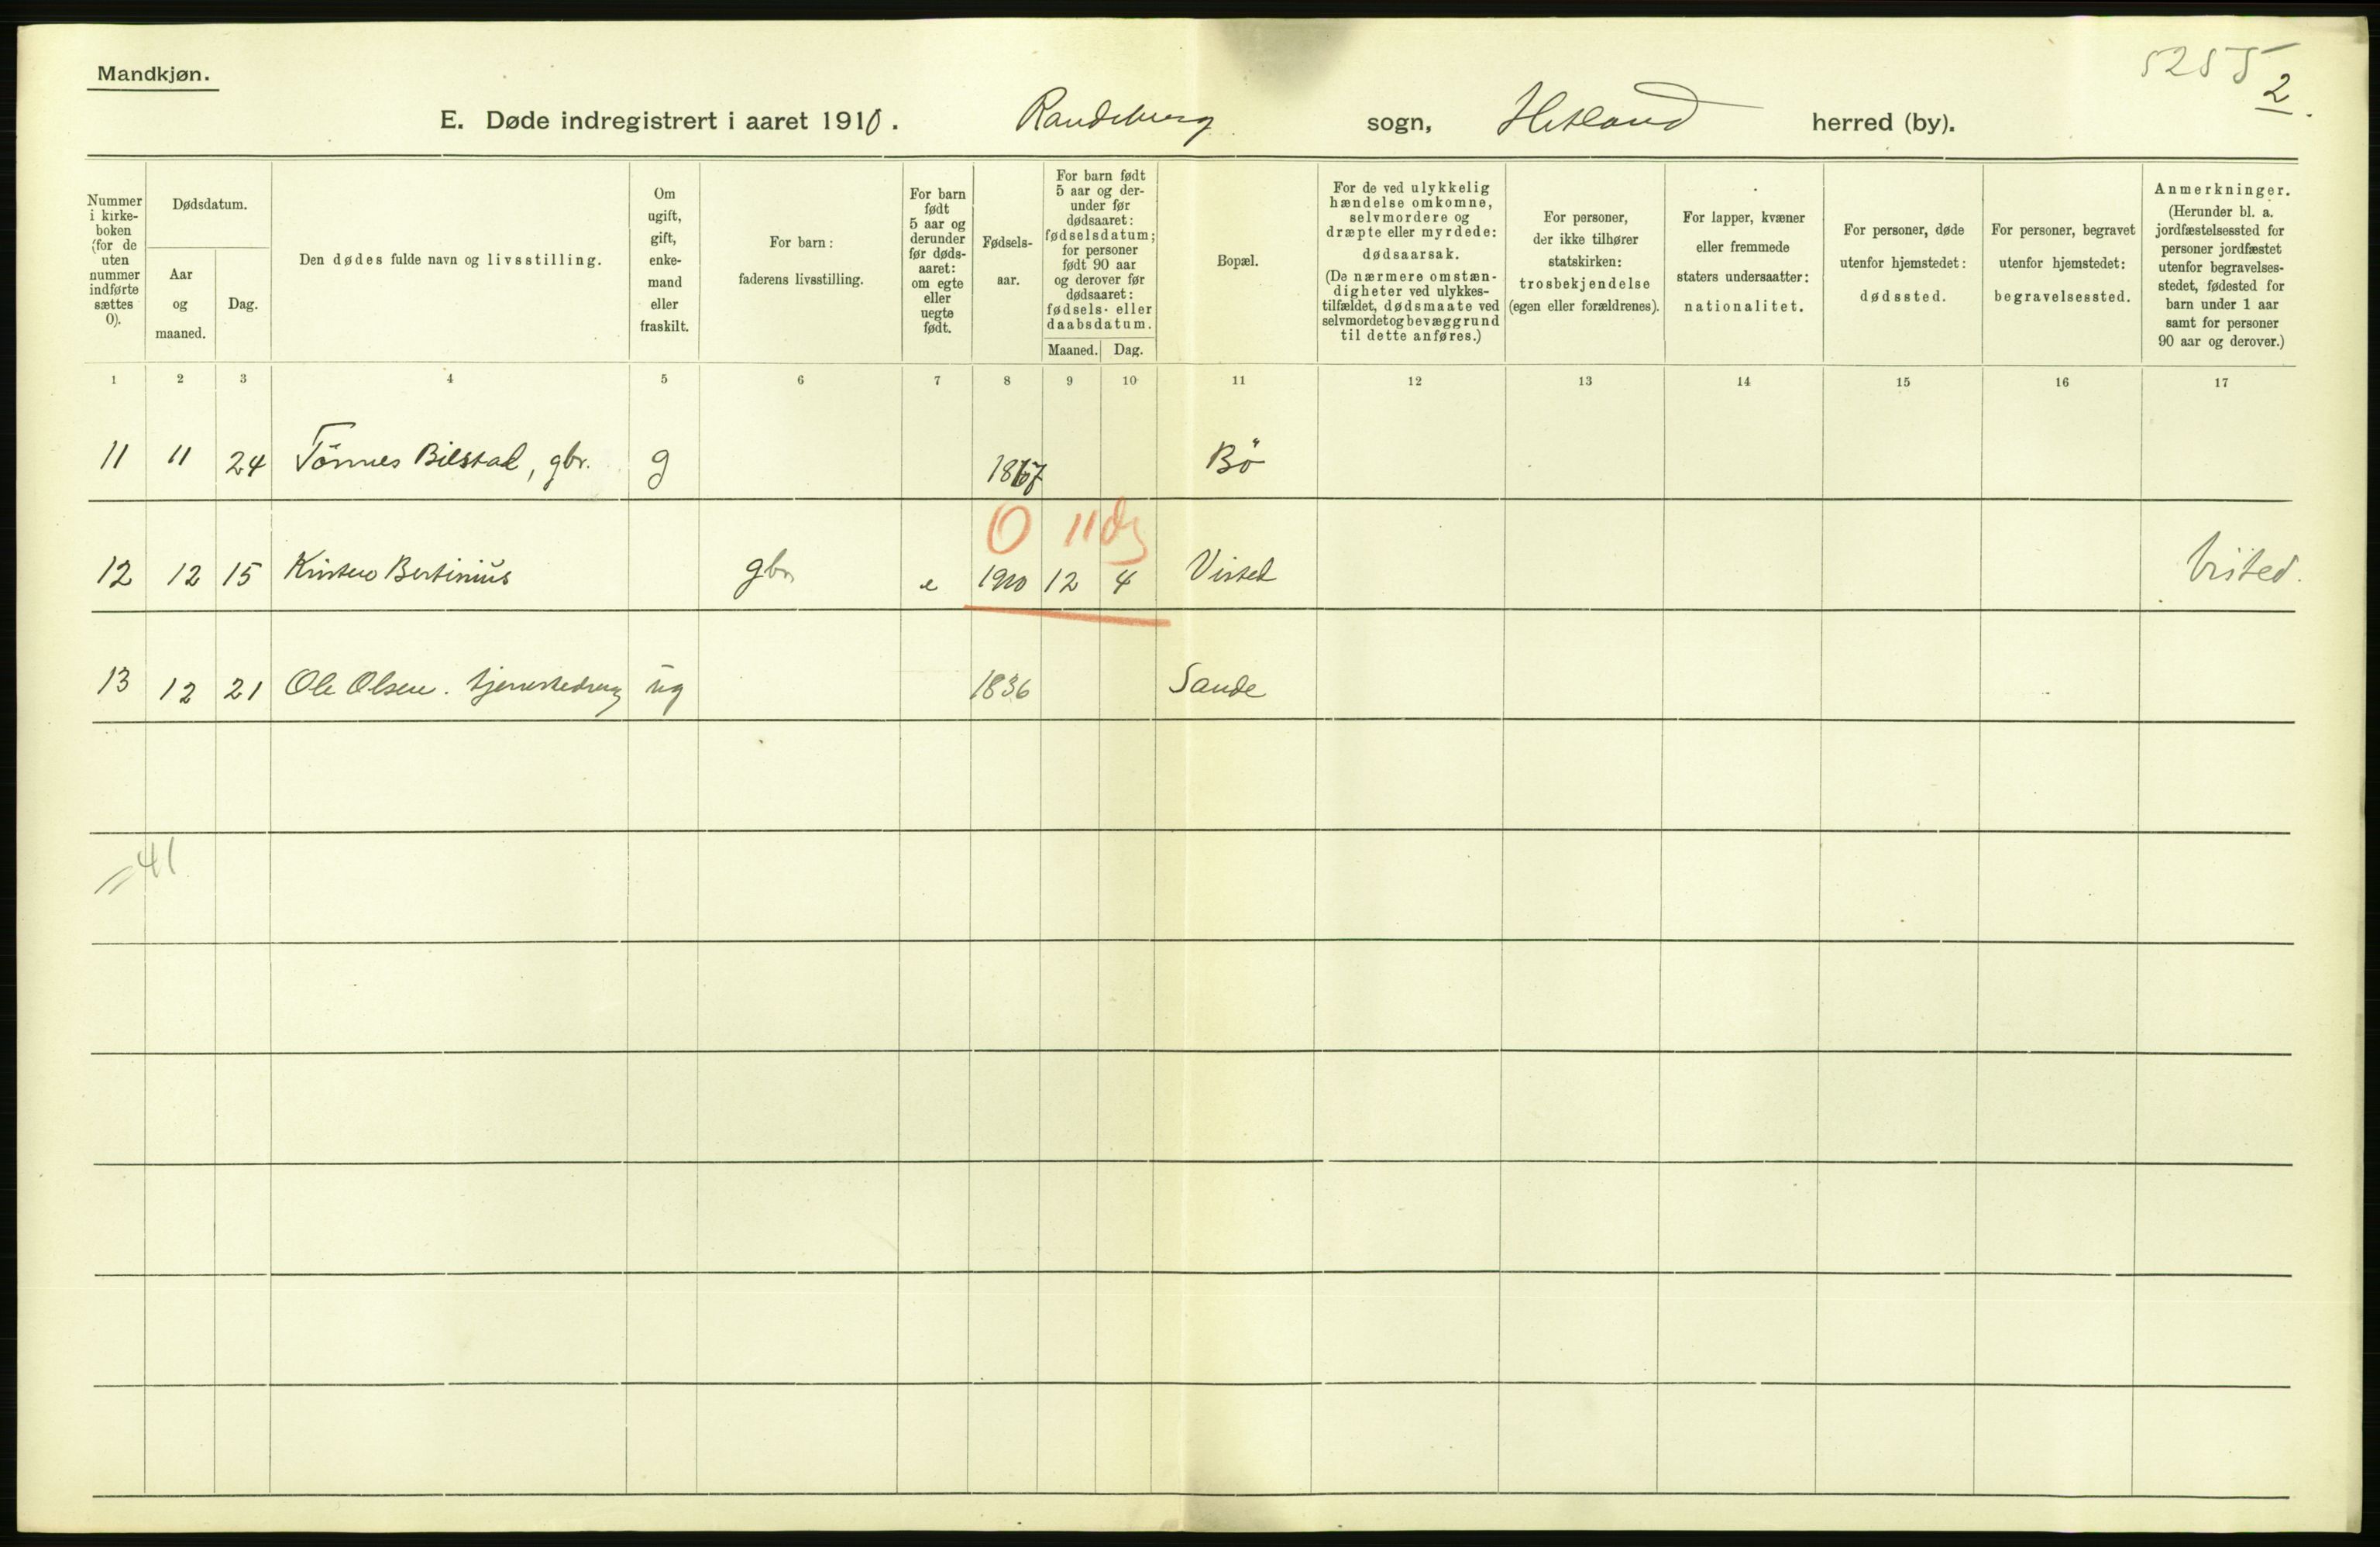 Mandkjøn.
5255
2.
E. Døde indregistrert i aaret 1910. Randeberg sogn, Hetland herred (by).
Nummer i kirke-boken (for de uten nummer indførte sættes 0).
Dødsdatum.
Aar og maaned.
Dag.
Den dødes fulde navn og livsstilling.
Om ugift, gift, enke-mand eller fraskilt.
For barn: faderens livsstilling.
For barn født 5 aar og derunder før døds-aaret: om egte eller uegte født.
Fødsels-aar.
For barn født 5 aar og der-under før dødsaaret: fødselsdatum; for personer født 90 aar og derover før dødsaaret: fødsels- eller daabsdatum.
Maaned. Dag.
Bopæl.
For de ved ulykkelig hændelse omkomne, selvmordere og dræpte eller myrdede: dødsaarsak. (De nærmere omstæn-digheter ved ulykkes-tilfældet, dødsmaate ved selvmord et og bevæggrund til dette anføres.)
For personer, der ikke tilhører statskirken: trosbekjendelse (egen eller forældrenes).
For lapper, kvæner eller fremmede staters undersaatter: nationalitet.
For personer, døde utenfor hjemstedet: dødssted.
For personer, begravet utenfor hjemstedet: begravelsessted.
Anmerkninger. (Herunder bl. a. jordfæstelsessted for personer jordfæstet utenfor begravelses-stedet, fødested for barn under 1 aar samt for personer 90 aar og derover.)
1 2 3 4 5 6 7 8 9 10 11 12 13 14 15 16 17
11 11 24 Tönnes Bilstad, gbr. g 1867 Bö
0 11 dg
12 12 15 Kristen Bertinius gbr. e 1910 12 4 Visted Visted.
13 12 21 Ole Olsen. tjenestedreng ug 1836 Sande
41